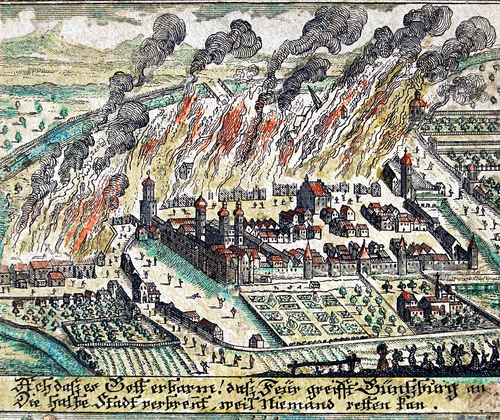 Ach daß es Gott erbarm! daß Feür greifft Güntzburg an.
Die halbe Stadt verbrent, weil Niemand retten kan.